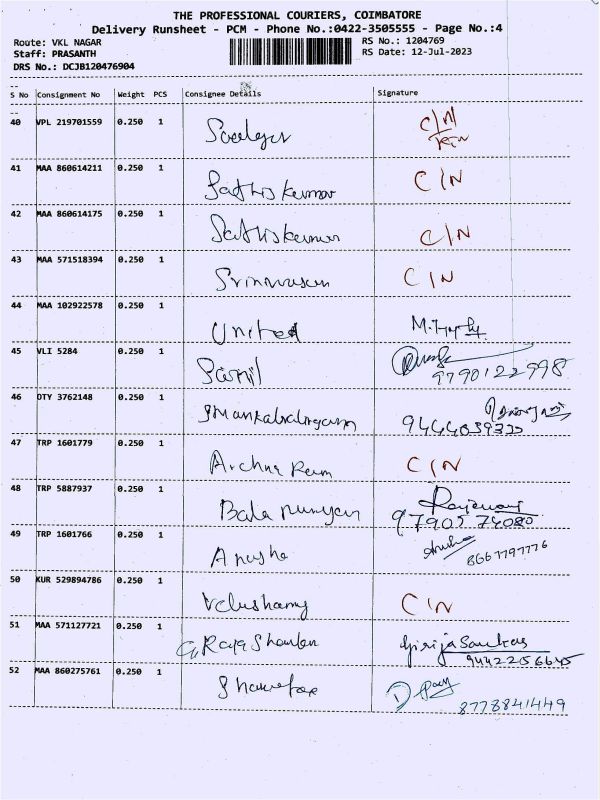 THE PROFESSIONAL COURIERS, COIMBATORE
Delivery Runsheet - PCM - Phone No.:0422-3505555 - Page No.:4
Route: VKL NAGAR RS No.: 1204769
Staff: PRASANTH RS Date: 12-Jul-2023
DRS No.: DCJB120476904
S No Consignment No Weight PCS Consignee Details Signature
40 VPL 219701559 0.250 1 C/N
41 MAA 860614211 0.250 1 Sathiskumar C/N
42 MAA 860614175 0.250 1 Sathiskumar C/N
43 MAA 571518394 0.250 1 Srinivasan C/N
44 MAA 102922578 0.250 1 United
45 VLI 5284 0.250 1 9790122998
46 OTY 3762148 0.250 1
47 TRP 1601779 0.250 1 Archna Ram C/N
48 TRP 5887937 0.250 1 Bala murugan 97905 74080
49 TRP 1601766 0.250 1 Anusha Anusha 8667797776
50 KUR 529894786 0.250 1 Velushamy C/N
51 MAA 571127721 0.250 1 G Raja Shankar Girija Sankar
52 MAA 860275761 0.250 1 8778841449